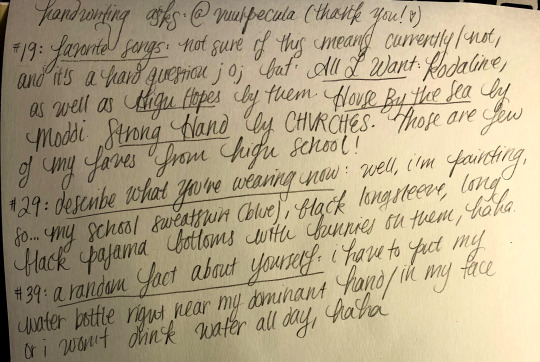 handwriting asks: @ nuurpecula (thank you! ♡)
#19: favorite songs: not sure if this means currently/not,
and it's a hard question ;o; but: All I Want: Kodaline,
as well as High Hopes by them. House By the Sea by
Moddi. Strong Hand by CHVRCHES. Those are few
of my faves from high school!
#29: describe what you're wearing now: well, i'm painting,
so... my school sweatshirt (blue), black longsleeve, long
black pajama bottoms with bunnies on them, haha.
#39: a random fact about yourself: i have to put my
water bottle right near my dominant hand/in my face
or i wont drink water all day, haha